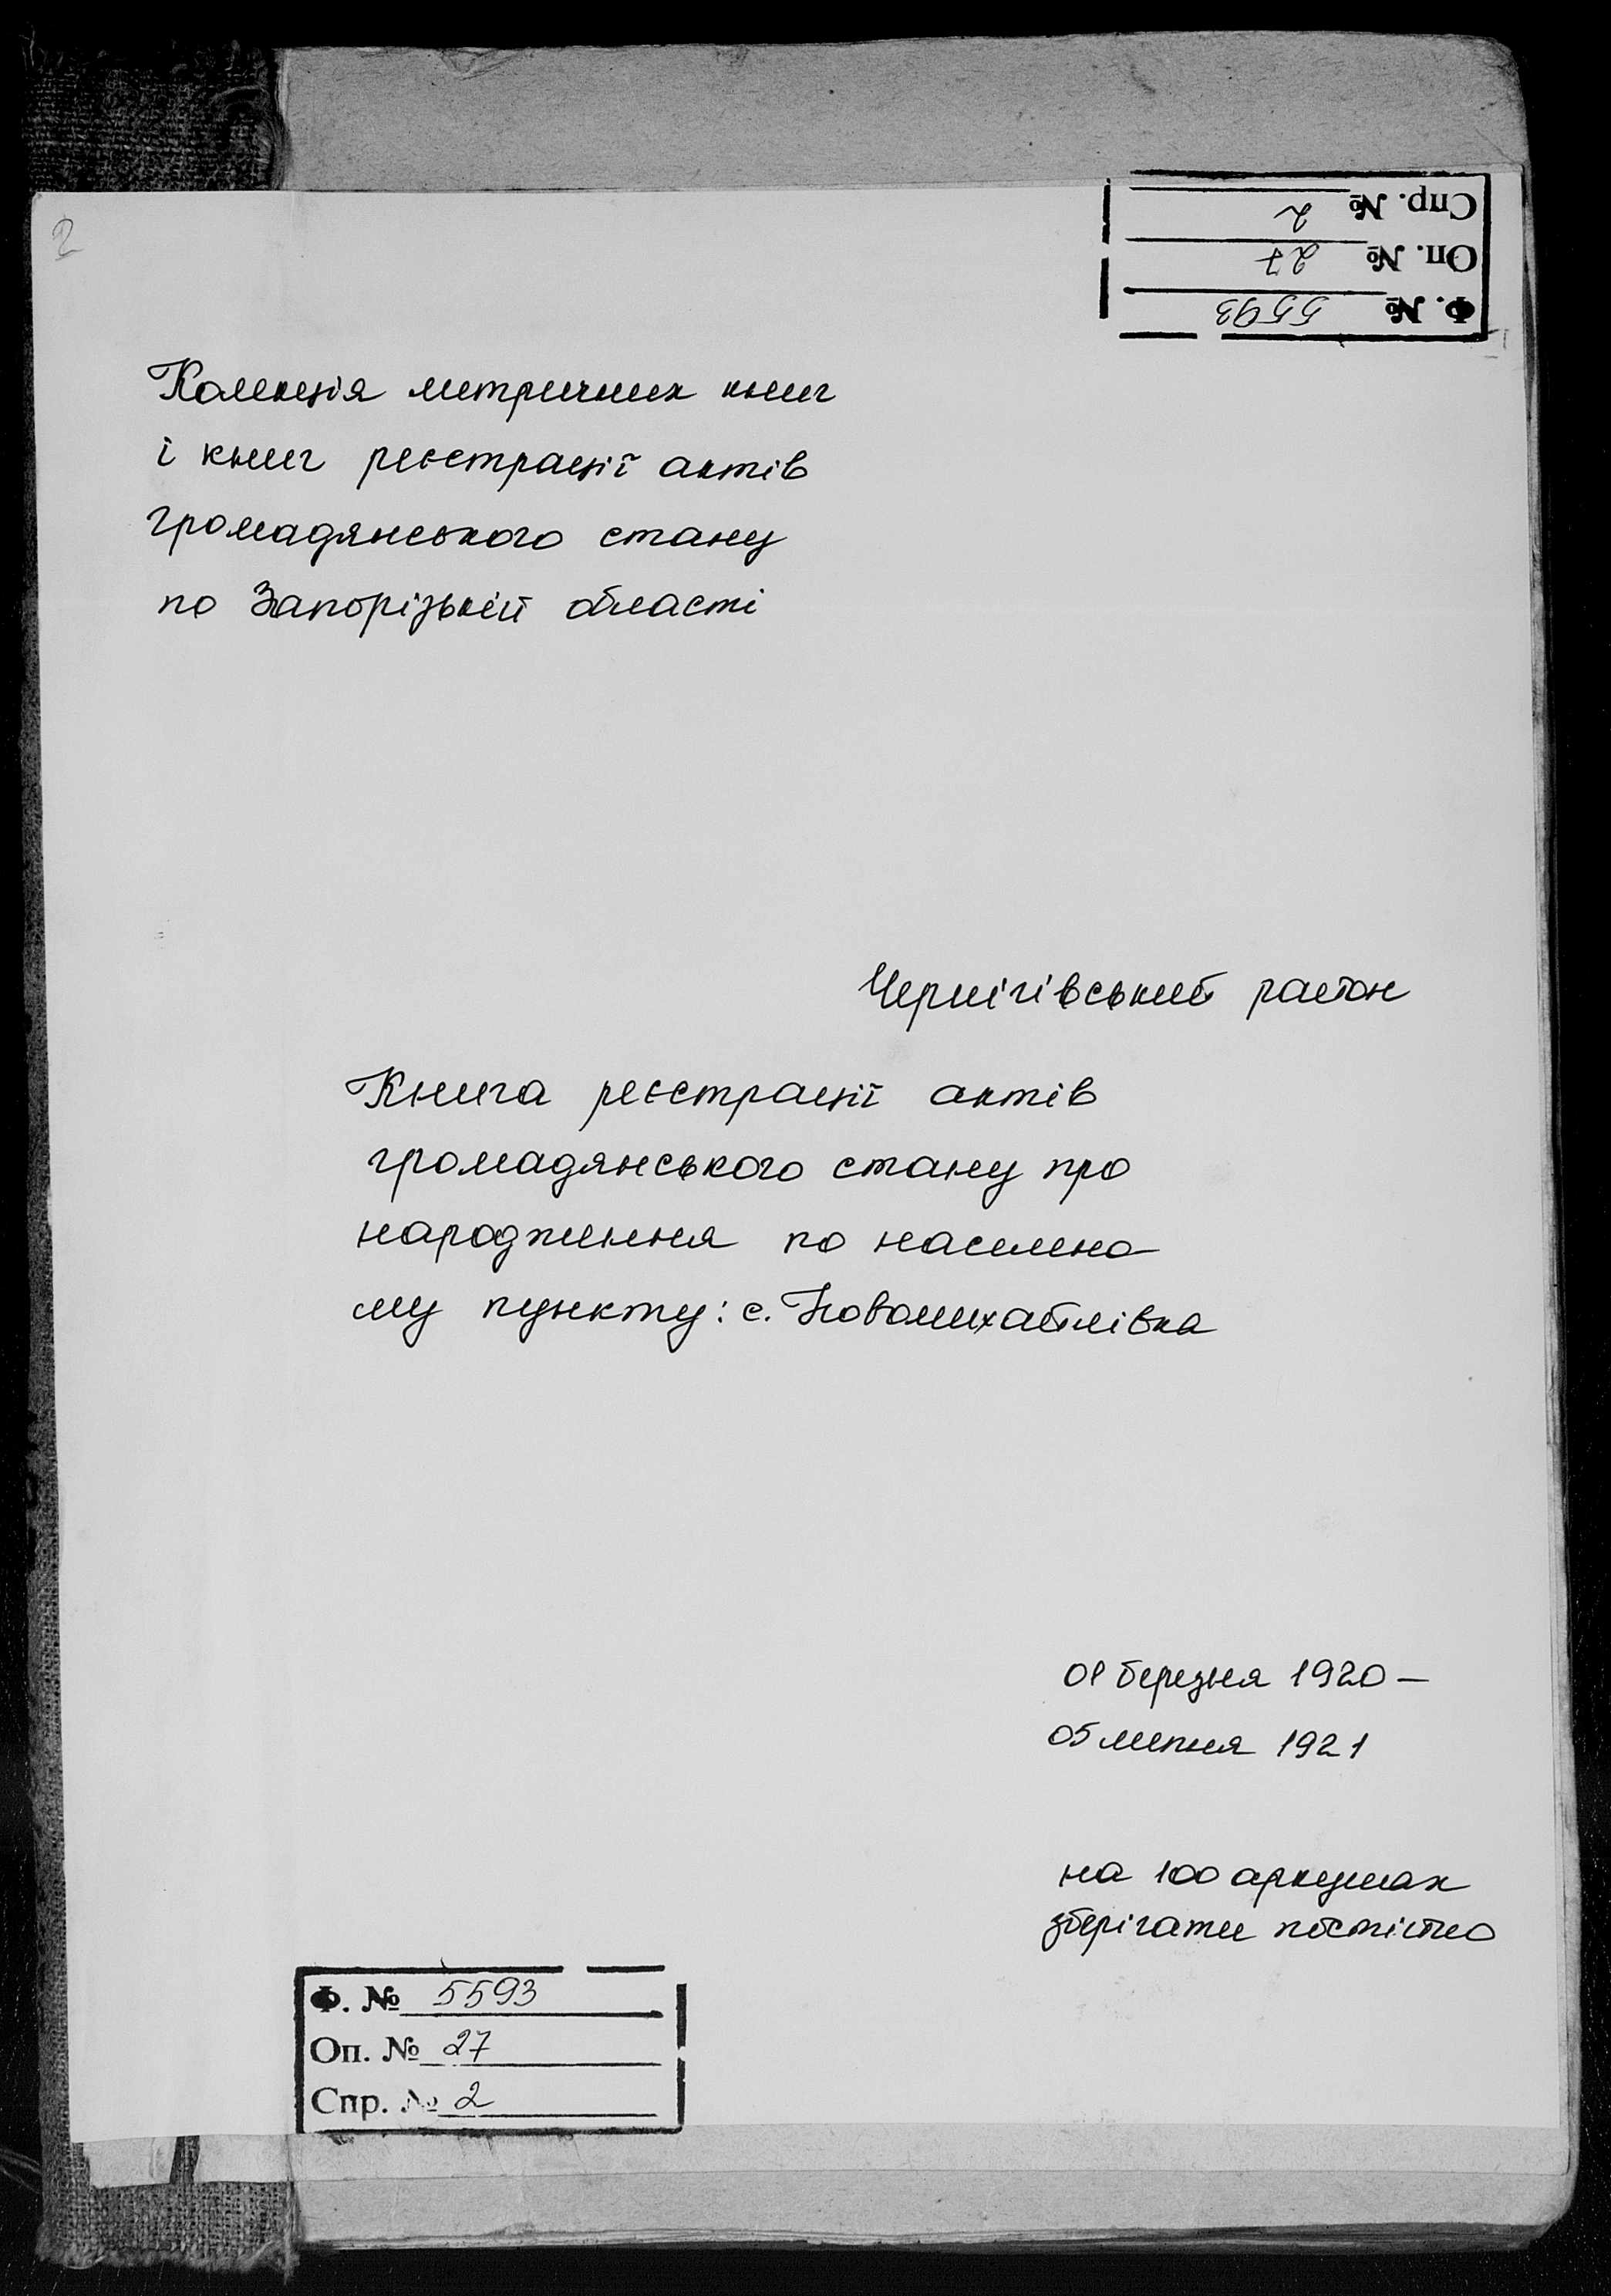 2
Спр. № 2
Оп. № 27
Ф. № 5593
Колекція метричних книг
і книг реєстрації актів
громадянського стану
по Запорізькій області
Чернігівський район
Книга реєстрації актів
громадянського стану про
народження по населено
му пункту: с. Новомихайлівка
01 березня 1920 –
05 липня 1921
на 100 аркушах
зберігати постійно
Ф. № 5593
Оп. № 27
Спр. № 2